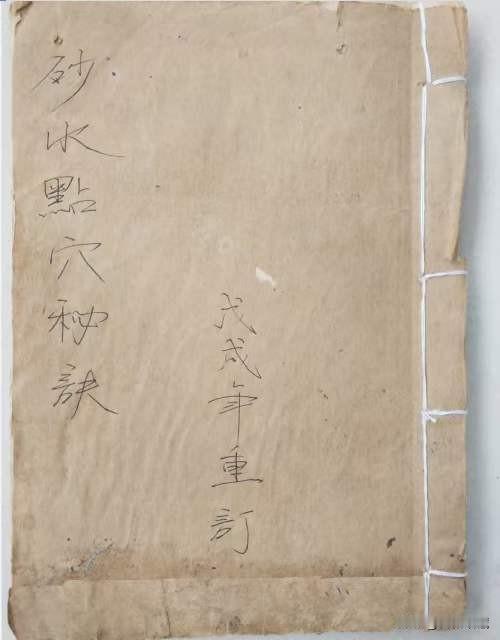 砂水點穴秘訣
戊戌年重訂